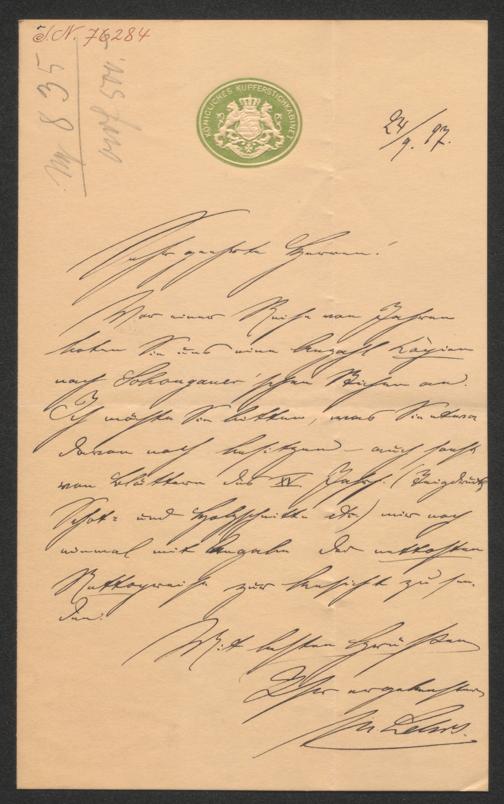 J. N. 76284
KÖNIGLICHES KUPFERSTICHKABINET
24/9. 97.
Sehr geehrte Herren!
Vor einer Reihe von Jahren
boten Sie uns eine Anzahl Copien
nach Schongauer'schen Stichen an.
Ich möchte Sie bitten, was Sie etwa
davon noch besitzen – auch sonst
von Blättern des XV. Jahrh. (Zeugdrucke
Schrot- und Holzschnitte etc) mir noch
einmal mit Angabe der
Nettopreise zur Ansicht zu sen-
den.
Mit besten Grüßen
Ihr ergebenster
M Lehrs.